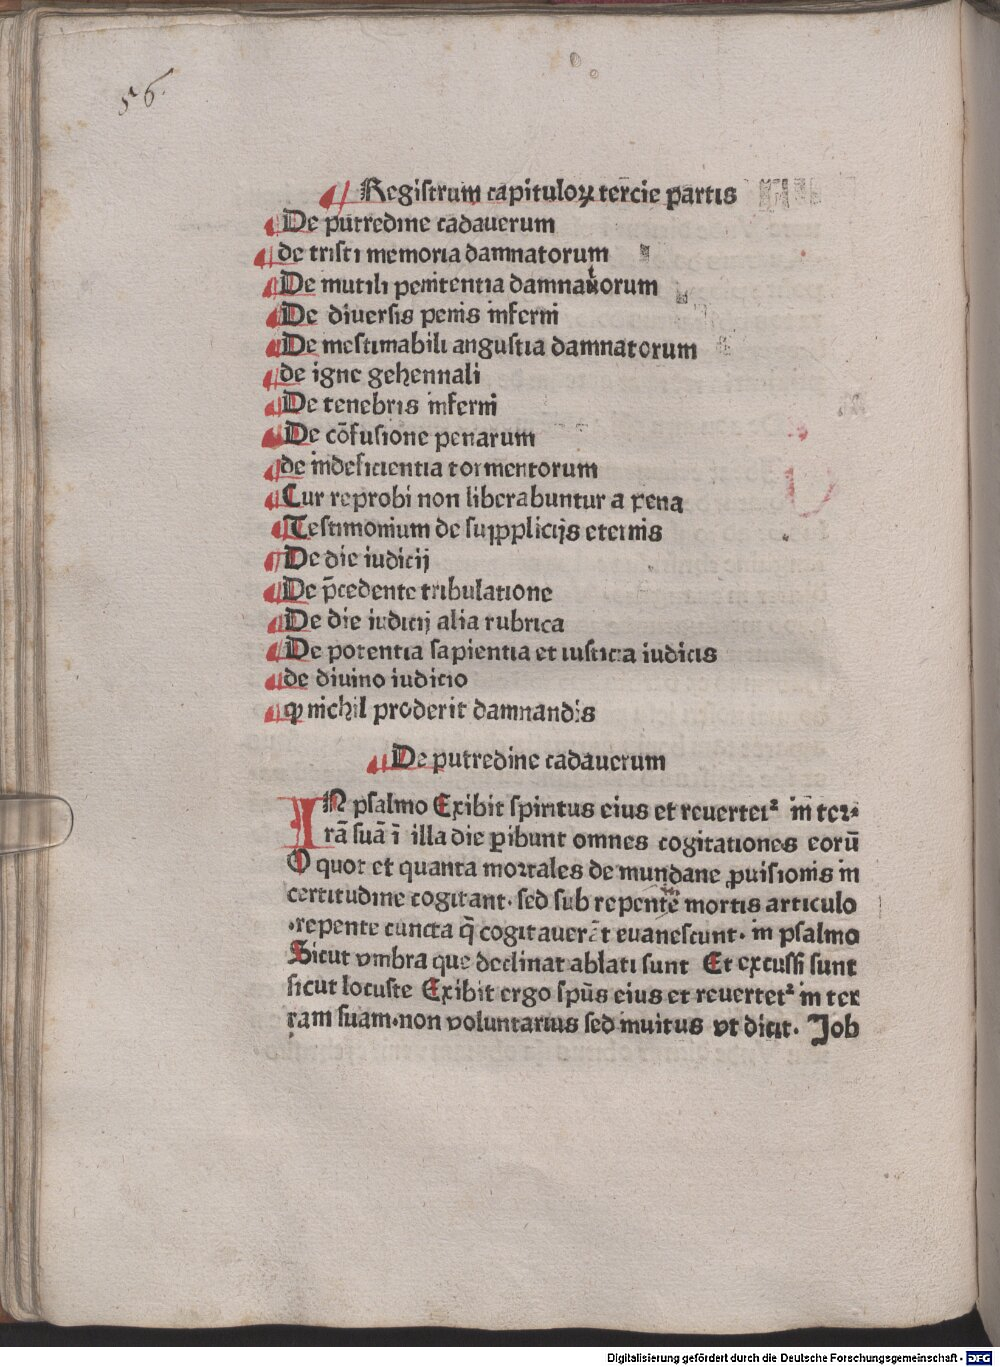 56.
Registrum capituloꝝ tercie partis
De putredine cadauerum
de tristi memoria damnatorum
De inutili penitentia damnatorum
De diuersis penis inferni
De inestimabili angustia damnatorum
de igne gehennali
De tenebris inferni
De cōfusione penarum
de indeficientia tormentorum
Cur reprobi non liberabuntur a pena
Testimonium de suppplicijs eternis
De die iudicij
De p̄cedente tribulatione
De die iudicij alia rubrica
De potentia sapientia et iusticia iudicis
de diuino iudicio
ꝙ nichil proderit damnandis
De putredine cadauerum
IN psalmo Exibit spiritus eius et reuertet᷑ in ter-
rā suā ī illa die ꝑibunt omnes cogitationes eorū
O quot et quanta mortales de mundane ꝓuisionis in
certitudine cogitant· sed sub repente mortis articulo
·repente cuncta q̄ cogitauerāt euanescunt· in psalmo
Sicut vmbra que declinat ablati sunt Et excussi sunt
sicut locuste Exibit ergo spūs eius et reuertet᷑ in ter
ram suam·non voluntarius sed inuitus vt dicit· Job
Digitalisierung gefördert durch die Deutsche Forschungsgemeinschaft - DFG